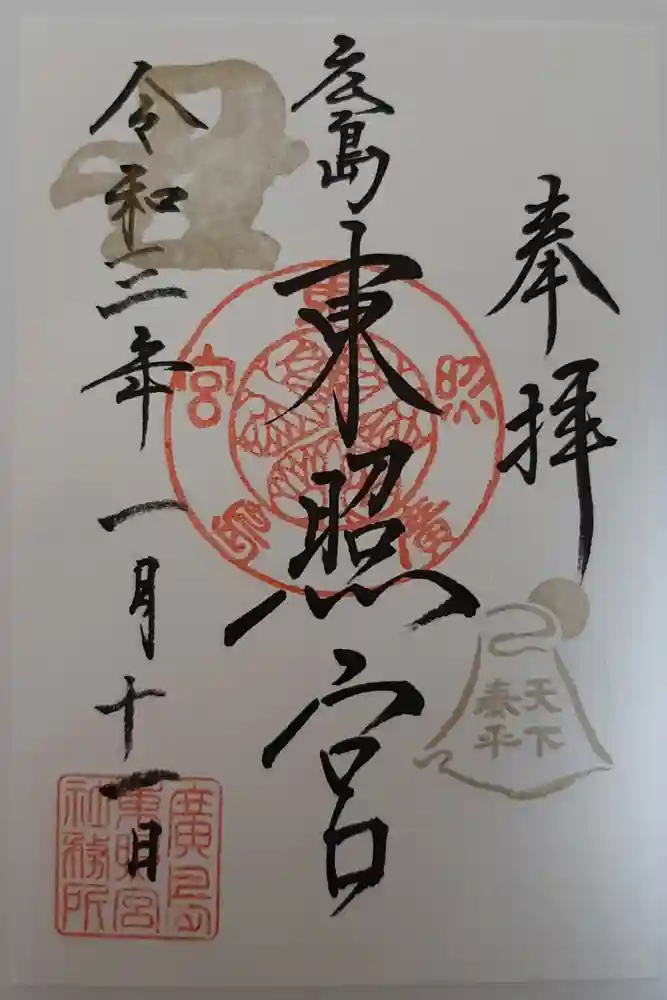 奉拝
天下
泰平
広島
東照宮
丑
令和三年一月十一日
廣島
東照宮
社務所